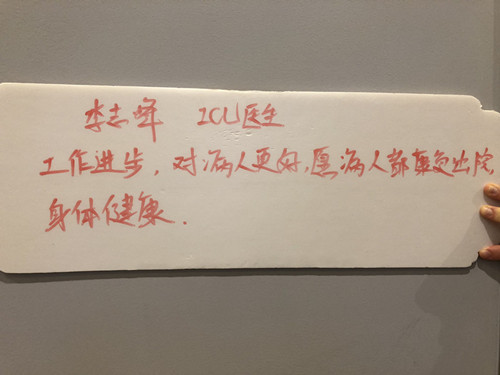 李志峰 ICU医生
工作进步，对病人更好，愿病人都康复出院，
身体健康.